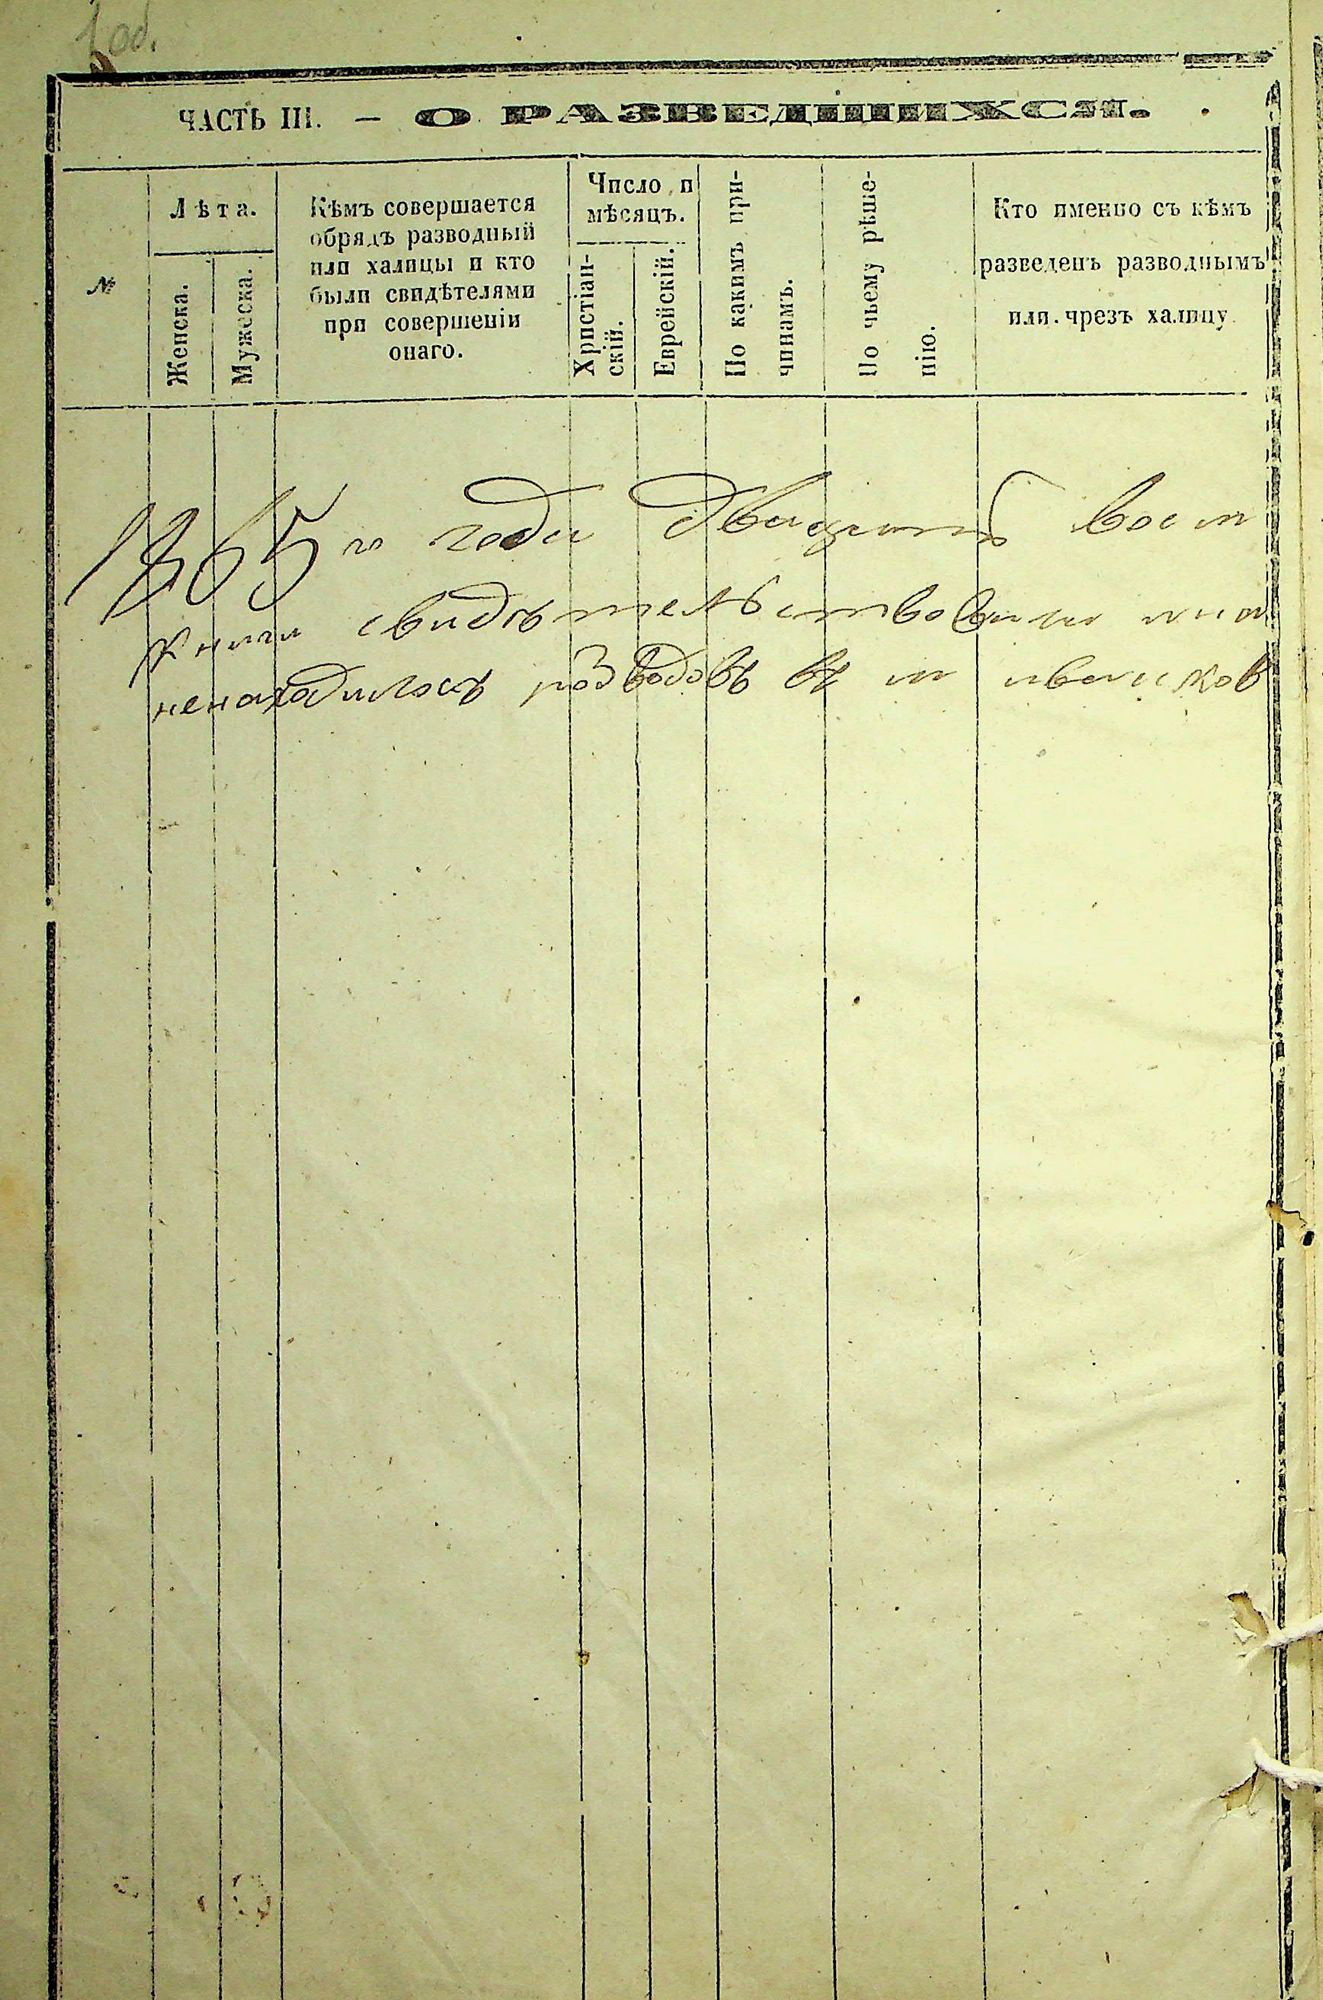 1 об.
ЧАСТЬ III. — О РАЗВЕДШИХСЯ.
№
Лѣта.
Женска.
Мужеска.
Кѣмъ совершается
обрядъ разводный
или халицы и кто
были свидѣтелями
при совершеніи
онаго.
Число и
мѣсяцъ.
Христіан-
скій.
Еврейскій.
По какимъ при-
чинамъ.
По чьему рѣше-
нію.
Кто именно съ кѣмъ
разведенъ разводнымъ
или чрезъ халицу
1865 го года двацать восм
книги свидѣтельствовали
ненаходилось розводовъ въ м иванков